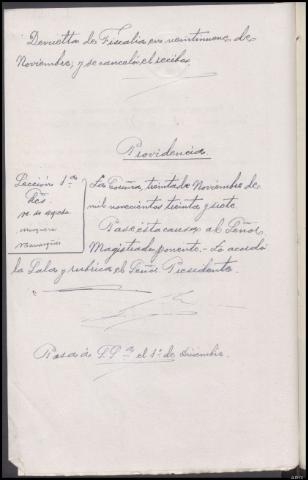 Devuelta de Fiscalía en veintinueve de
Noviembre, y se canceló el recibo.
Providencia
Sección 1ª
Srs.
La Coruña, treinta de Noviembre de
mil novecientos treinta y siete
Pase esta causa al Señor
Magistrado ponente.- Lo acordó
la Sala y rubrica el Señor Presidente.
Pasa a el 1º de diciembre.